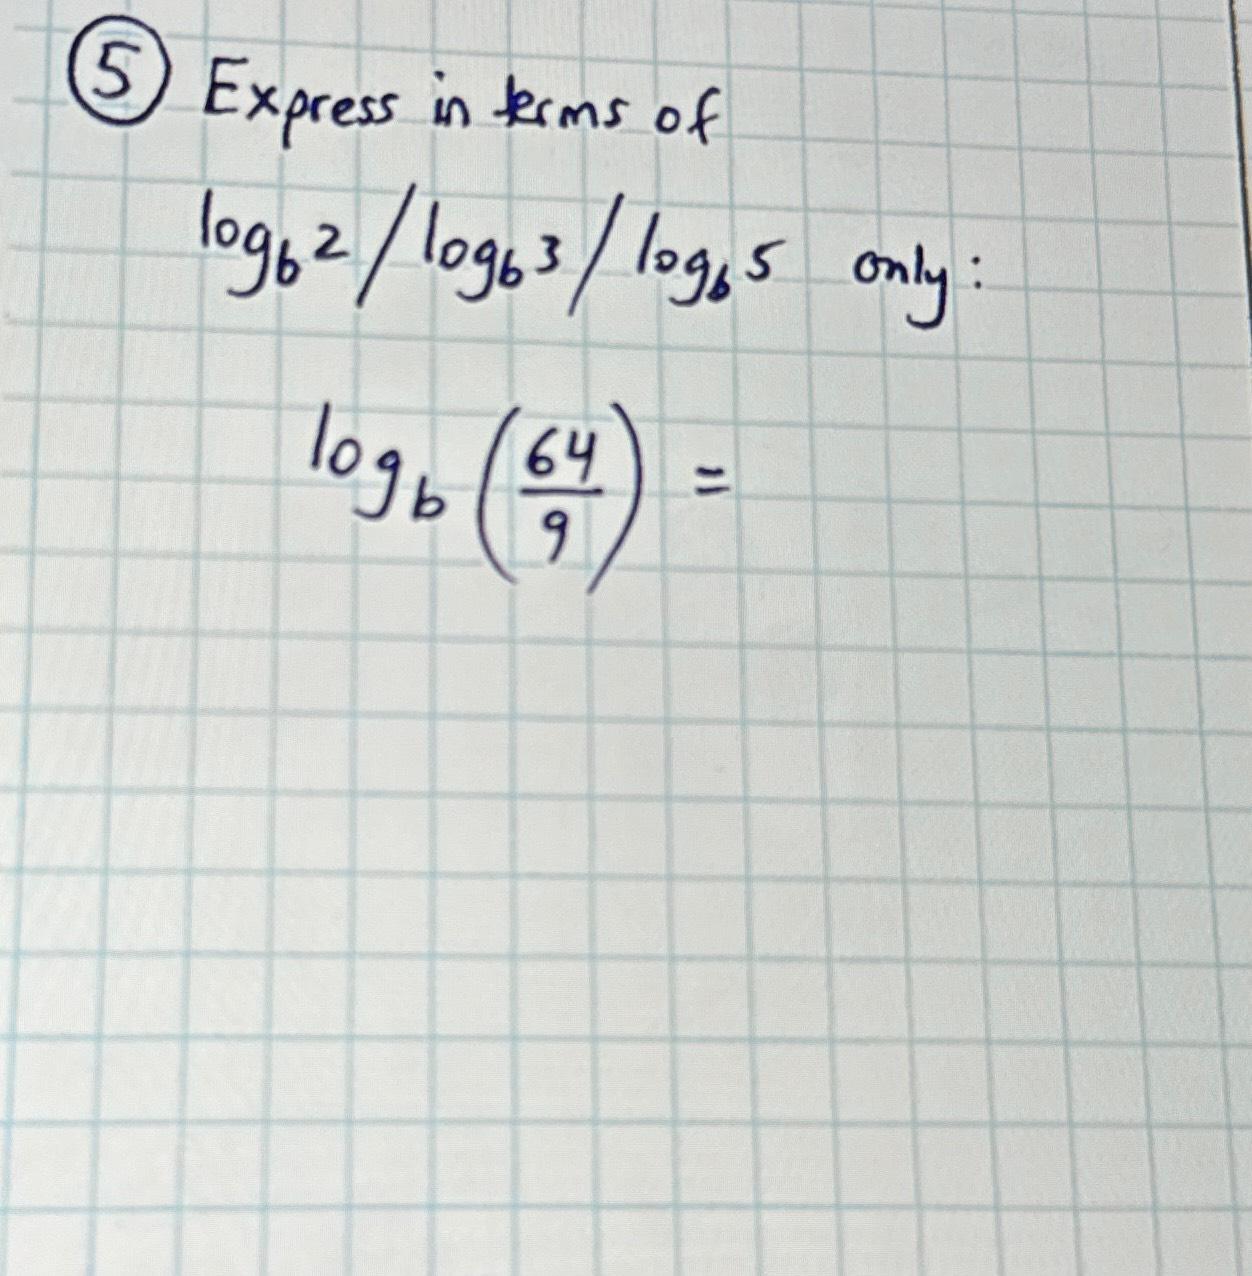 ⑤ Express in terms of
log_b 2 / log_b 3 / log_b 5 only:
log_b (64/9) =